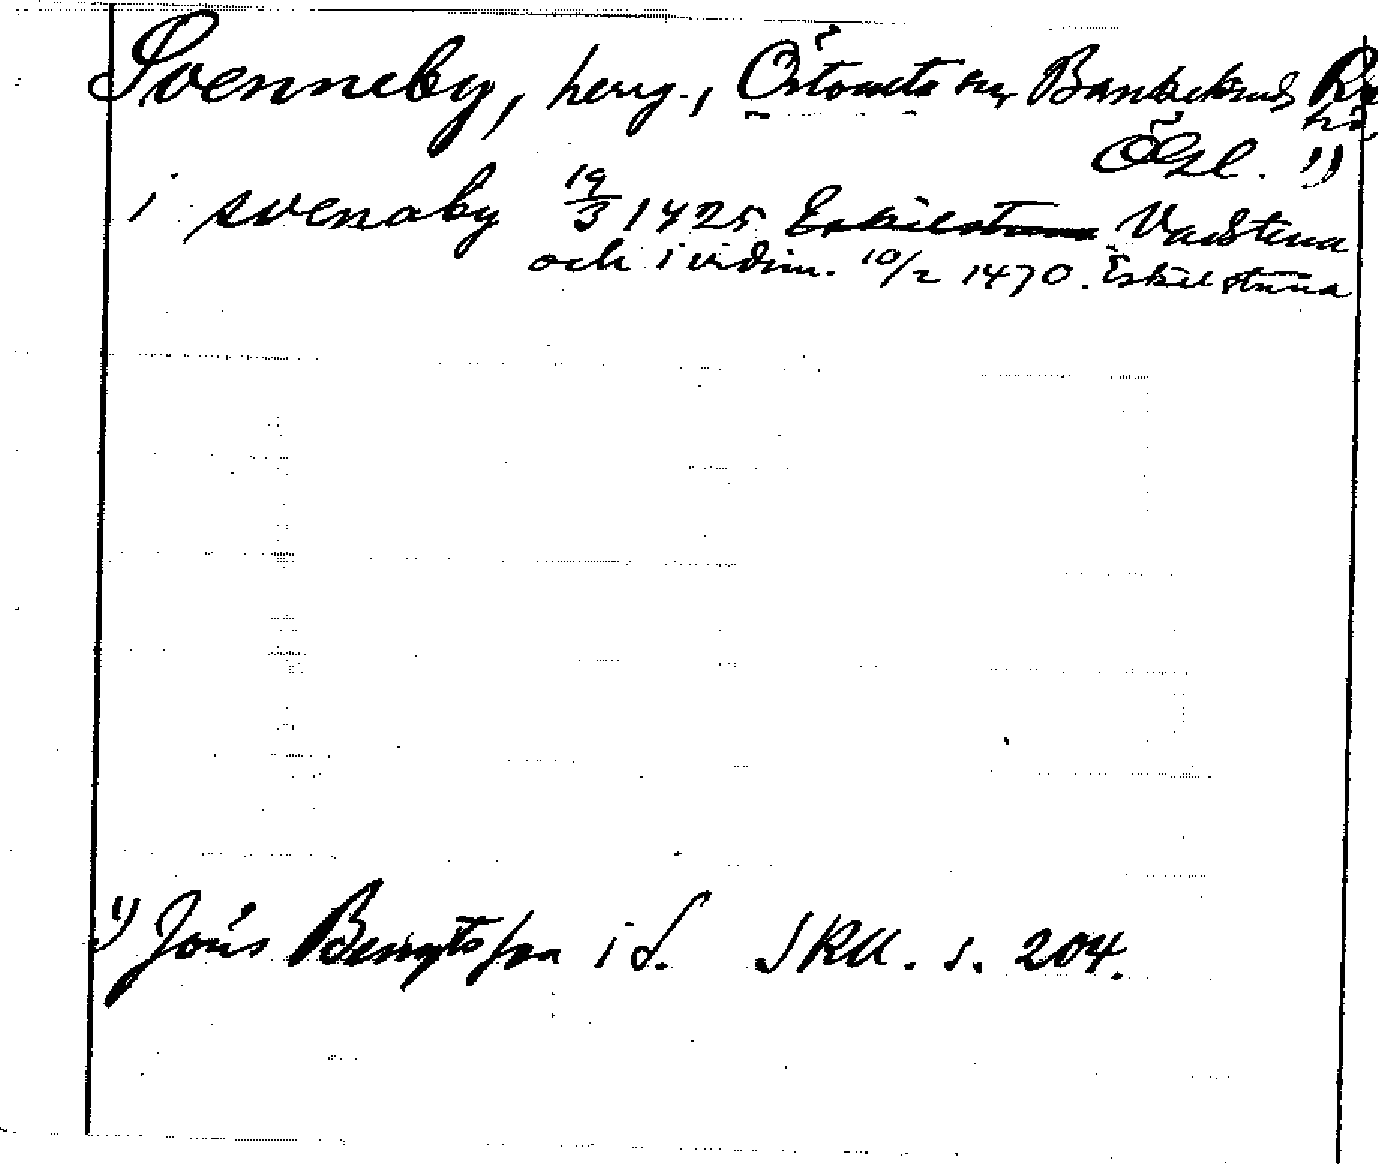 Svenneby, herrg., Östomta sn, Bankekinds
hd
Ögl. 1)
i svenaby 19/3 1425 Eskilstuna Vadstena
och i vidim. 10/2 1470. Eskilstuna
1) Jöns Bengtsson i S. SRU. s. 204.